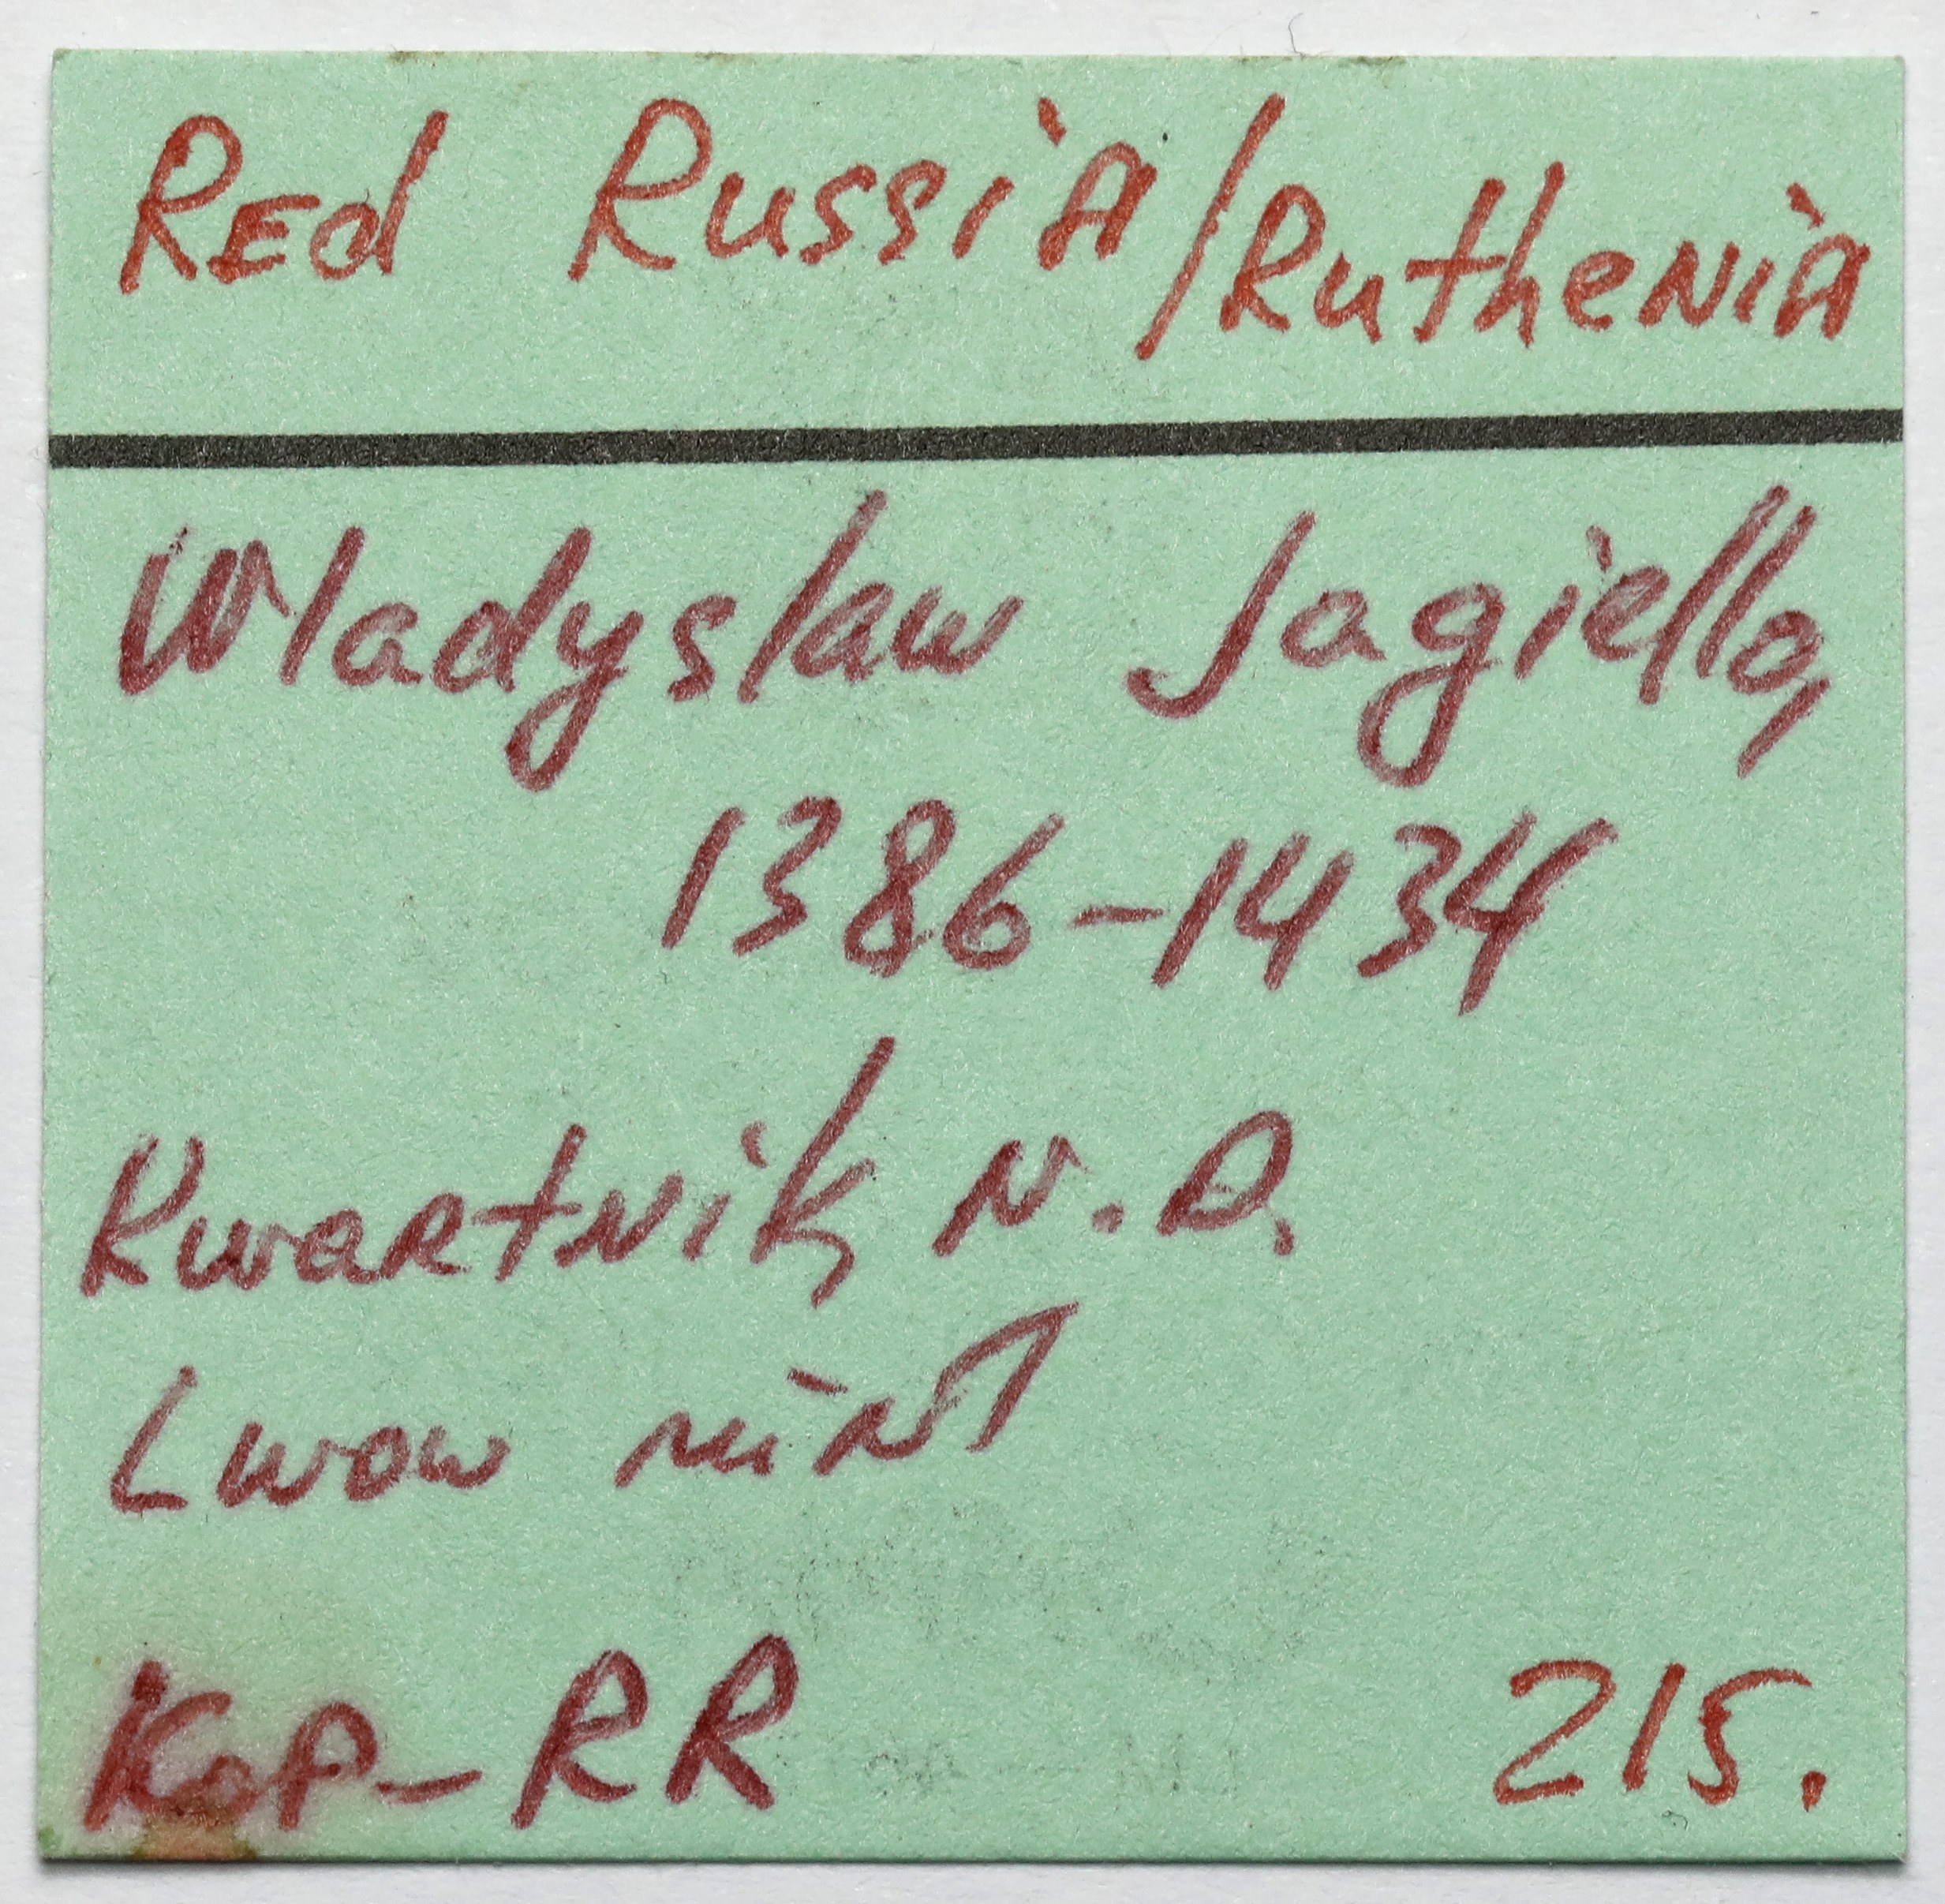 Red Russia/Ruthenia
Wladyslaw Jagiello,
1386-1434
Kwartnik, N.D.
Lwow mint
Kop-RR 215.